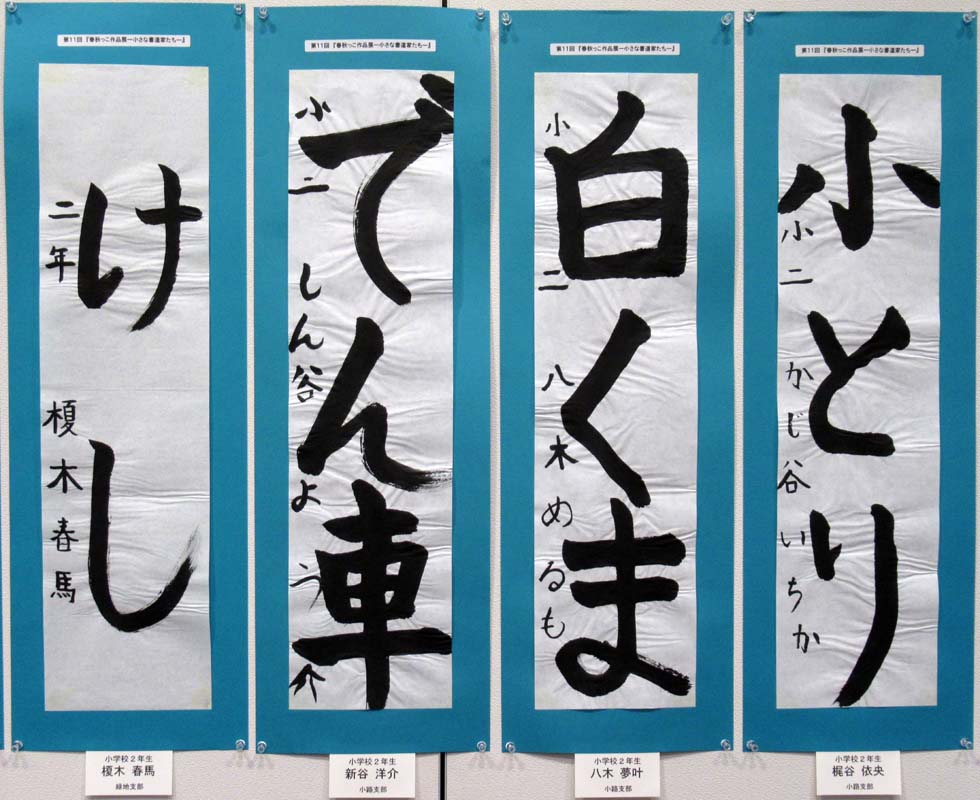 第11回『春秋っこ作品展ー小さな書道家たちー』
けし
二年 榎木春馬
小学校2年生
榎木 春馬
緑地支部
第11回『春秋っこ作品展ー小さな書道家たちー』
でん車
小二 しん谷よう介
小学校2年生
新谷 洋介
小路支部
第11回『春秋っこ作品展ー小さな書道家たちー』
白くま
小二 八木めるも
小学校2年生
八木 夢叶
小路支部
第11回『春秋っこ作品展ー小さな書道家たちー』
小とり
小二 かじ谷いちか
小学校2年生
梶谷 依央
小路支部